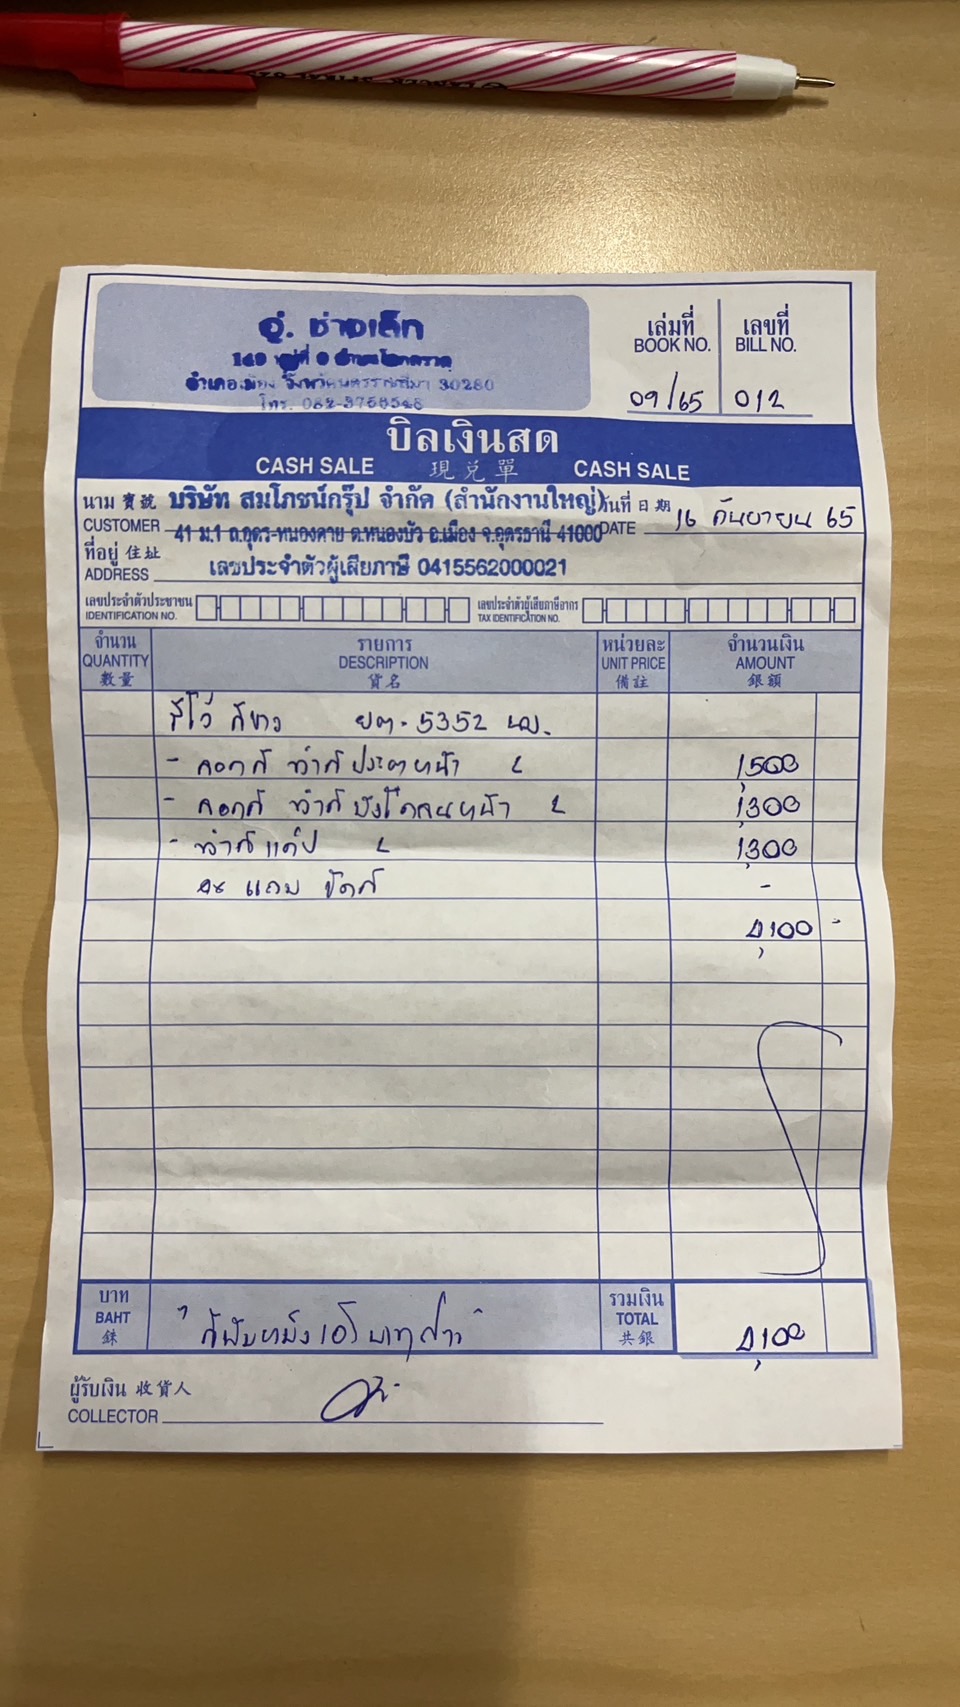 อู่. ช่างเล็ก
อำเภอเมือง จังหวัดนครราชสีมา 30280
โทร.
เล่มที่
BOOK NO.
09/65
เลขที่
BILL NO.
012
บิลเงินสด
CASH SALE 現兌單 CASH SALE
นาม 賓號 บริษัท สมโภชน์กรุ๊ป จำกัด (สำนักงานใหญ่) วันที่ 日期
CUSTOMER 41 ม.1 ถ.อุดร-หนองคาย ต.หนองบัว อ.เมือง จ.อุดรธานี 41000 DATE 16 กันยายน 65
ที่อยู่ 住址
ADDRESS เลขประจำตัวผู้เสียภาษี 0415562000021
เลขประจำตัวประชาชน
IDENTIFICATION NO.
เลขประจำตัวผู้เสียภาษีอากร
TAX IDENTIFICATION NO.
จำนวน รายการ หน่วยละ จำนวนเงิน
QUANTITY DESCRIPTION UNIT PRICE AMOUNT
數量 貨名 備註 銀額
รีโว้ สีขาว ยต-5352 นม.
- ลอกสี ทำสีประตูหน้า L 1,500
- ลอกสี ทำสีบังโคลนหน้า L 1,300
- ทำสีแค๊ป L 1,300
แถม ขัดสี -
4,100 -
บาท
BAHT
銖
"สี่พันหนึ่งร้อยบาทถ้วน"
รวมเงิน
TOTAL
共銀
4,100
ผู้รับเงิน 收貨人
COLLECTOR